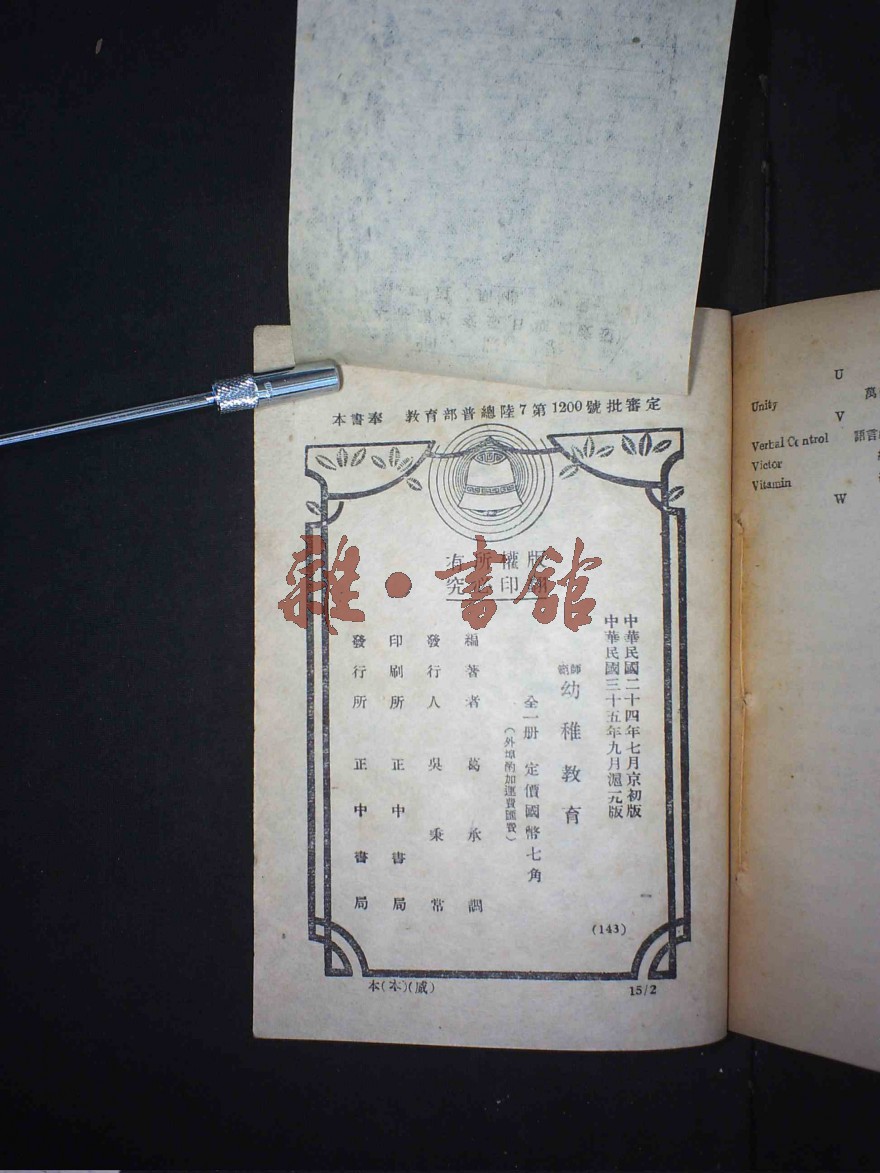 本書奉 教育部普總陸7第1200號批審定
版權所有
翻印必究
中華民國二十四年七月京初版
中華民國三十五年九月滬一版
幼稚教育
全一册 定價國幣七角
(外埠酌加運費匯費)
編著者 葛承訓
發行人 吳秉常
印刷所 正中書局
發行所 正中書局
(143)
本(本)(威)
15/2
雜·書館
U
Unity
V
Verbal Control 語言
Victor
Vitamin
W